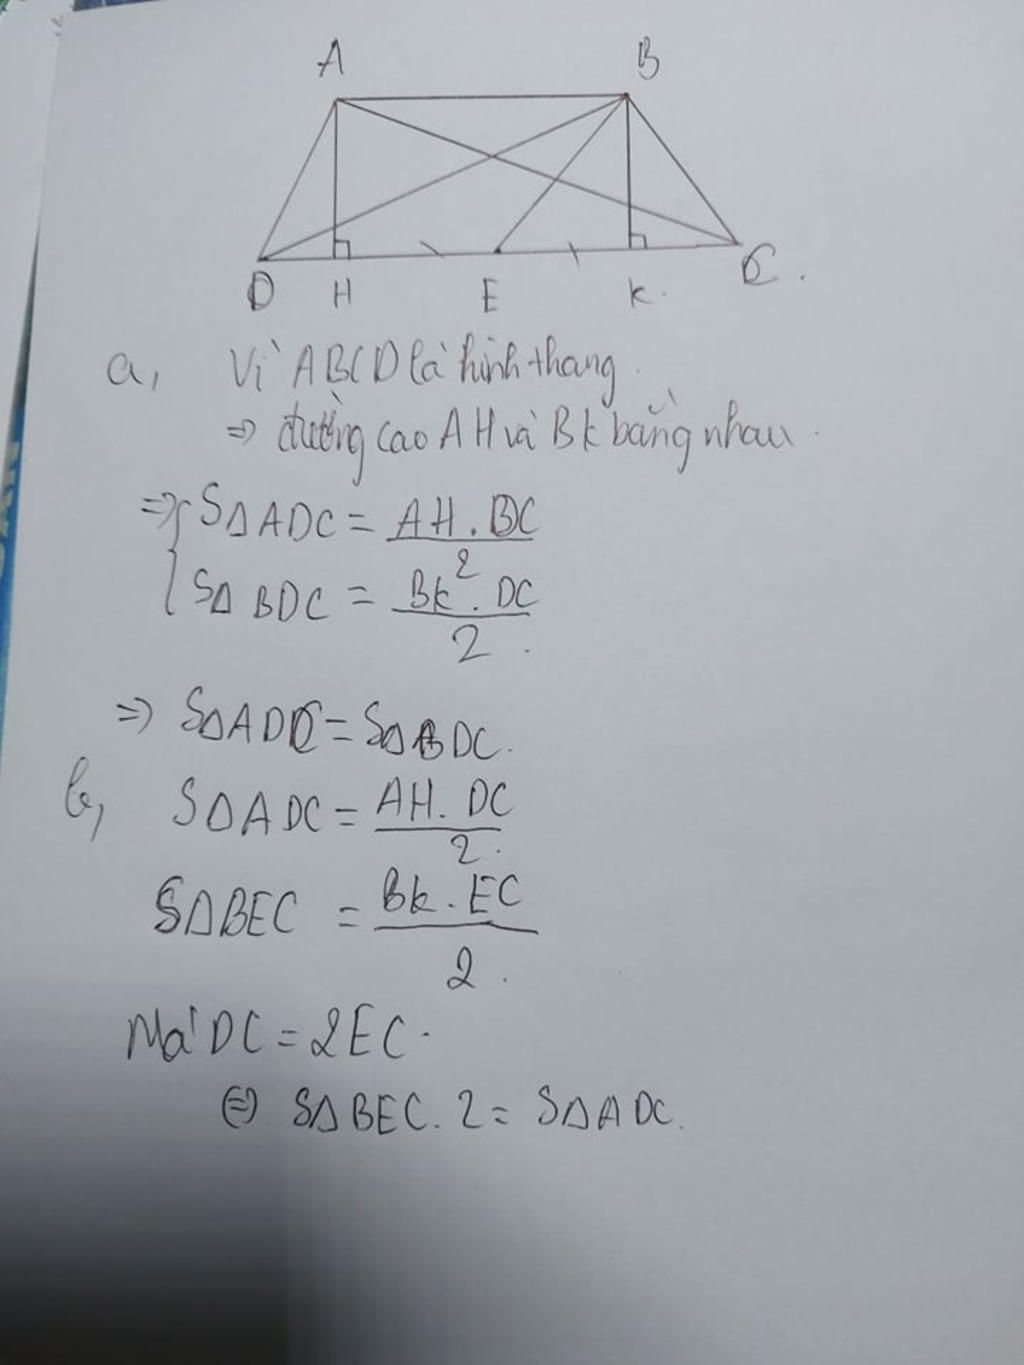 A B
D H E K. C.
a, Vì ABCD là hình thang.
=> đường cao AH và BK bằng nhau.
=> { SΔADC = AH.DC / 2
SΔBDC = BK.DC / 2.
=> SΔADC = SΔBDC.
b, SΔADC = AH.DC / 2.
SΔBEC = BK.EC / 2.
Mà DC = 2EC.
<=> SΔBEC.2 = SΔADC.